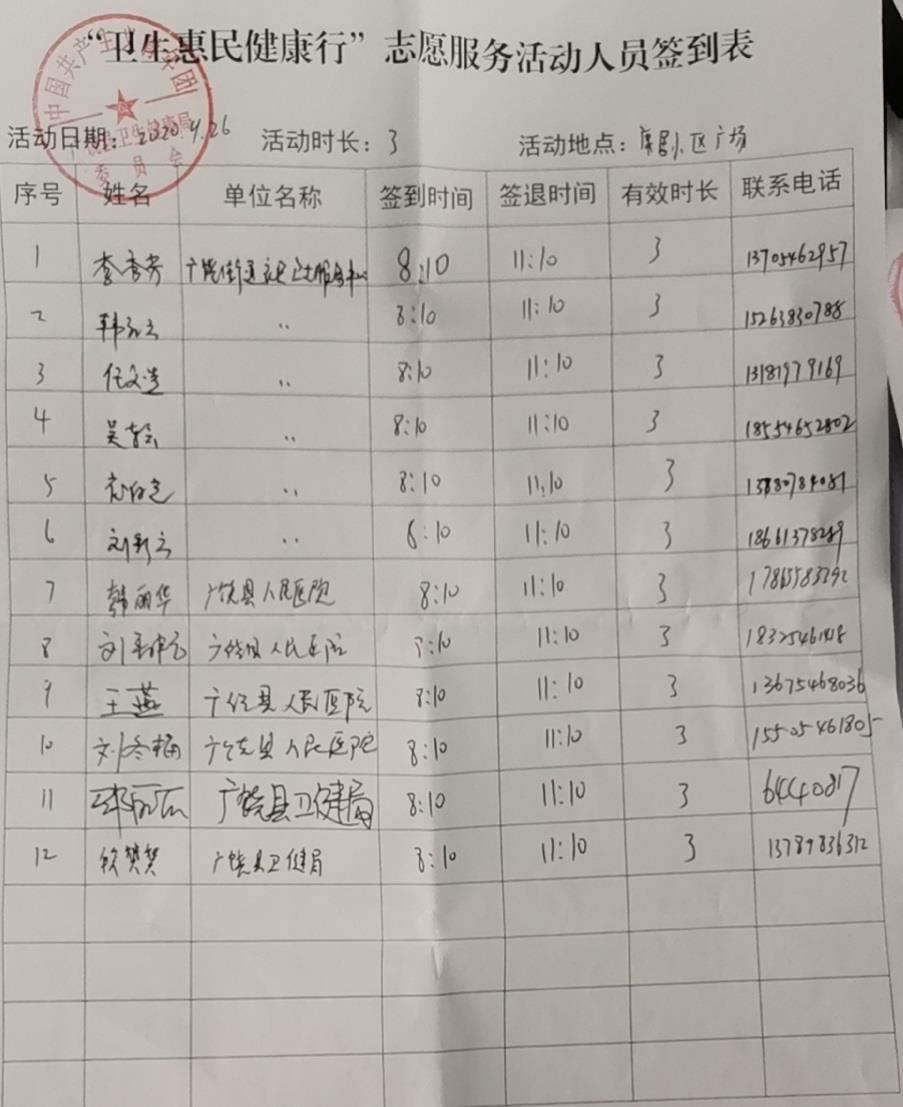 “卫生惠民健康行”志愿服务活动人员签到表
活动日期：2020.4.26 活动时长：3 活动地点：康居小区广场
序号 姓名 单位名称 签到时间 签退时间 有效时长 联系电话
1 李秀芳 广饶街道社区卫生服务中心 8:10 11:10 3 13705462957
2 韩 〃 8:10 11:10 3 15263830788
3 任文 〃 8:10 11:10 3 13181979169
4 吴 〃 8:10 11:10 3 18554652802
5 〃 8:10 11:10 3
6 刘彩云 〃 8:10 11:10 3
7 韩丽华 广饶县人民医院 8:10 11:10 3
8 刘 广饶县人民医院 8:10 11:10 3
9 王燕 广饶县人民医院 8:10 11:10 3 13675468036
10 刘冬梅 广饶县人民医院 8:10 11:10 3 15505461805
11 广饶县卫健局 8:10 11:10 3 64440817
12 樊樊 广饶县卫健局 8:10 11:10 3 13789836312